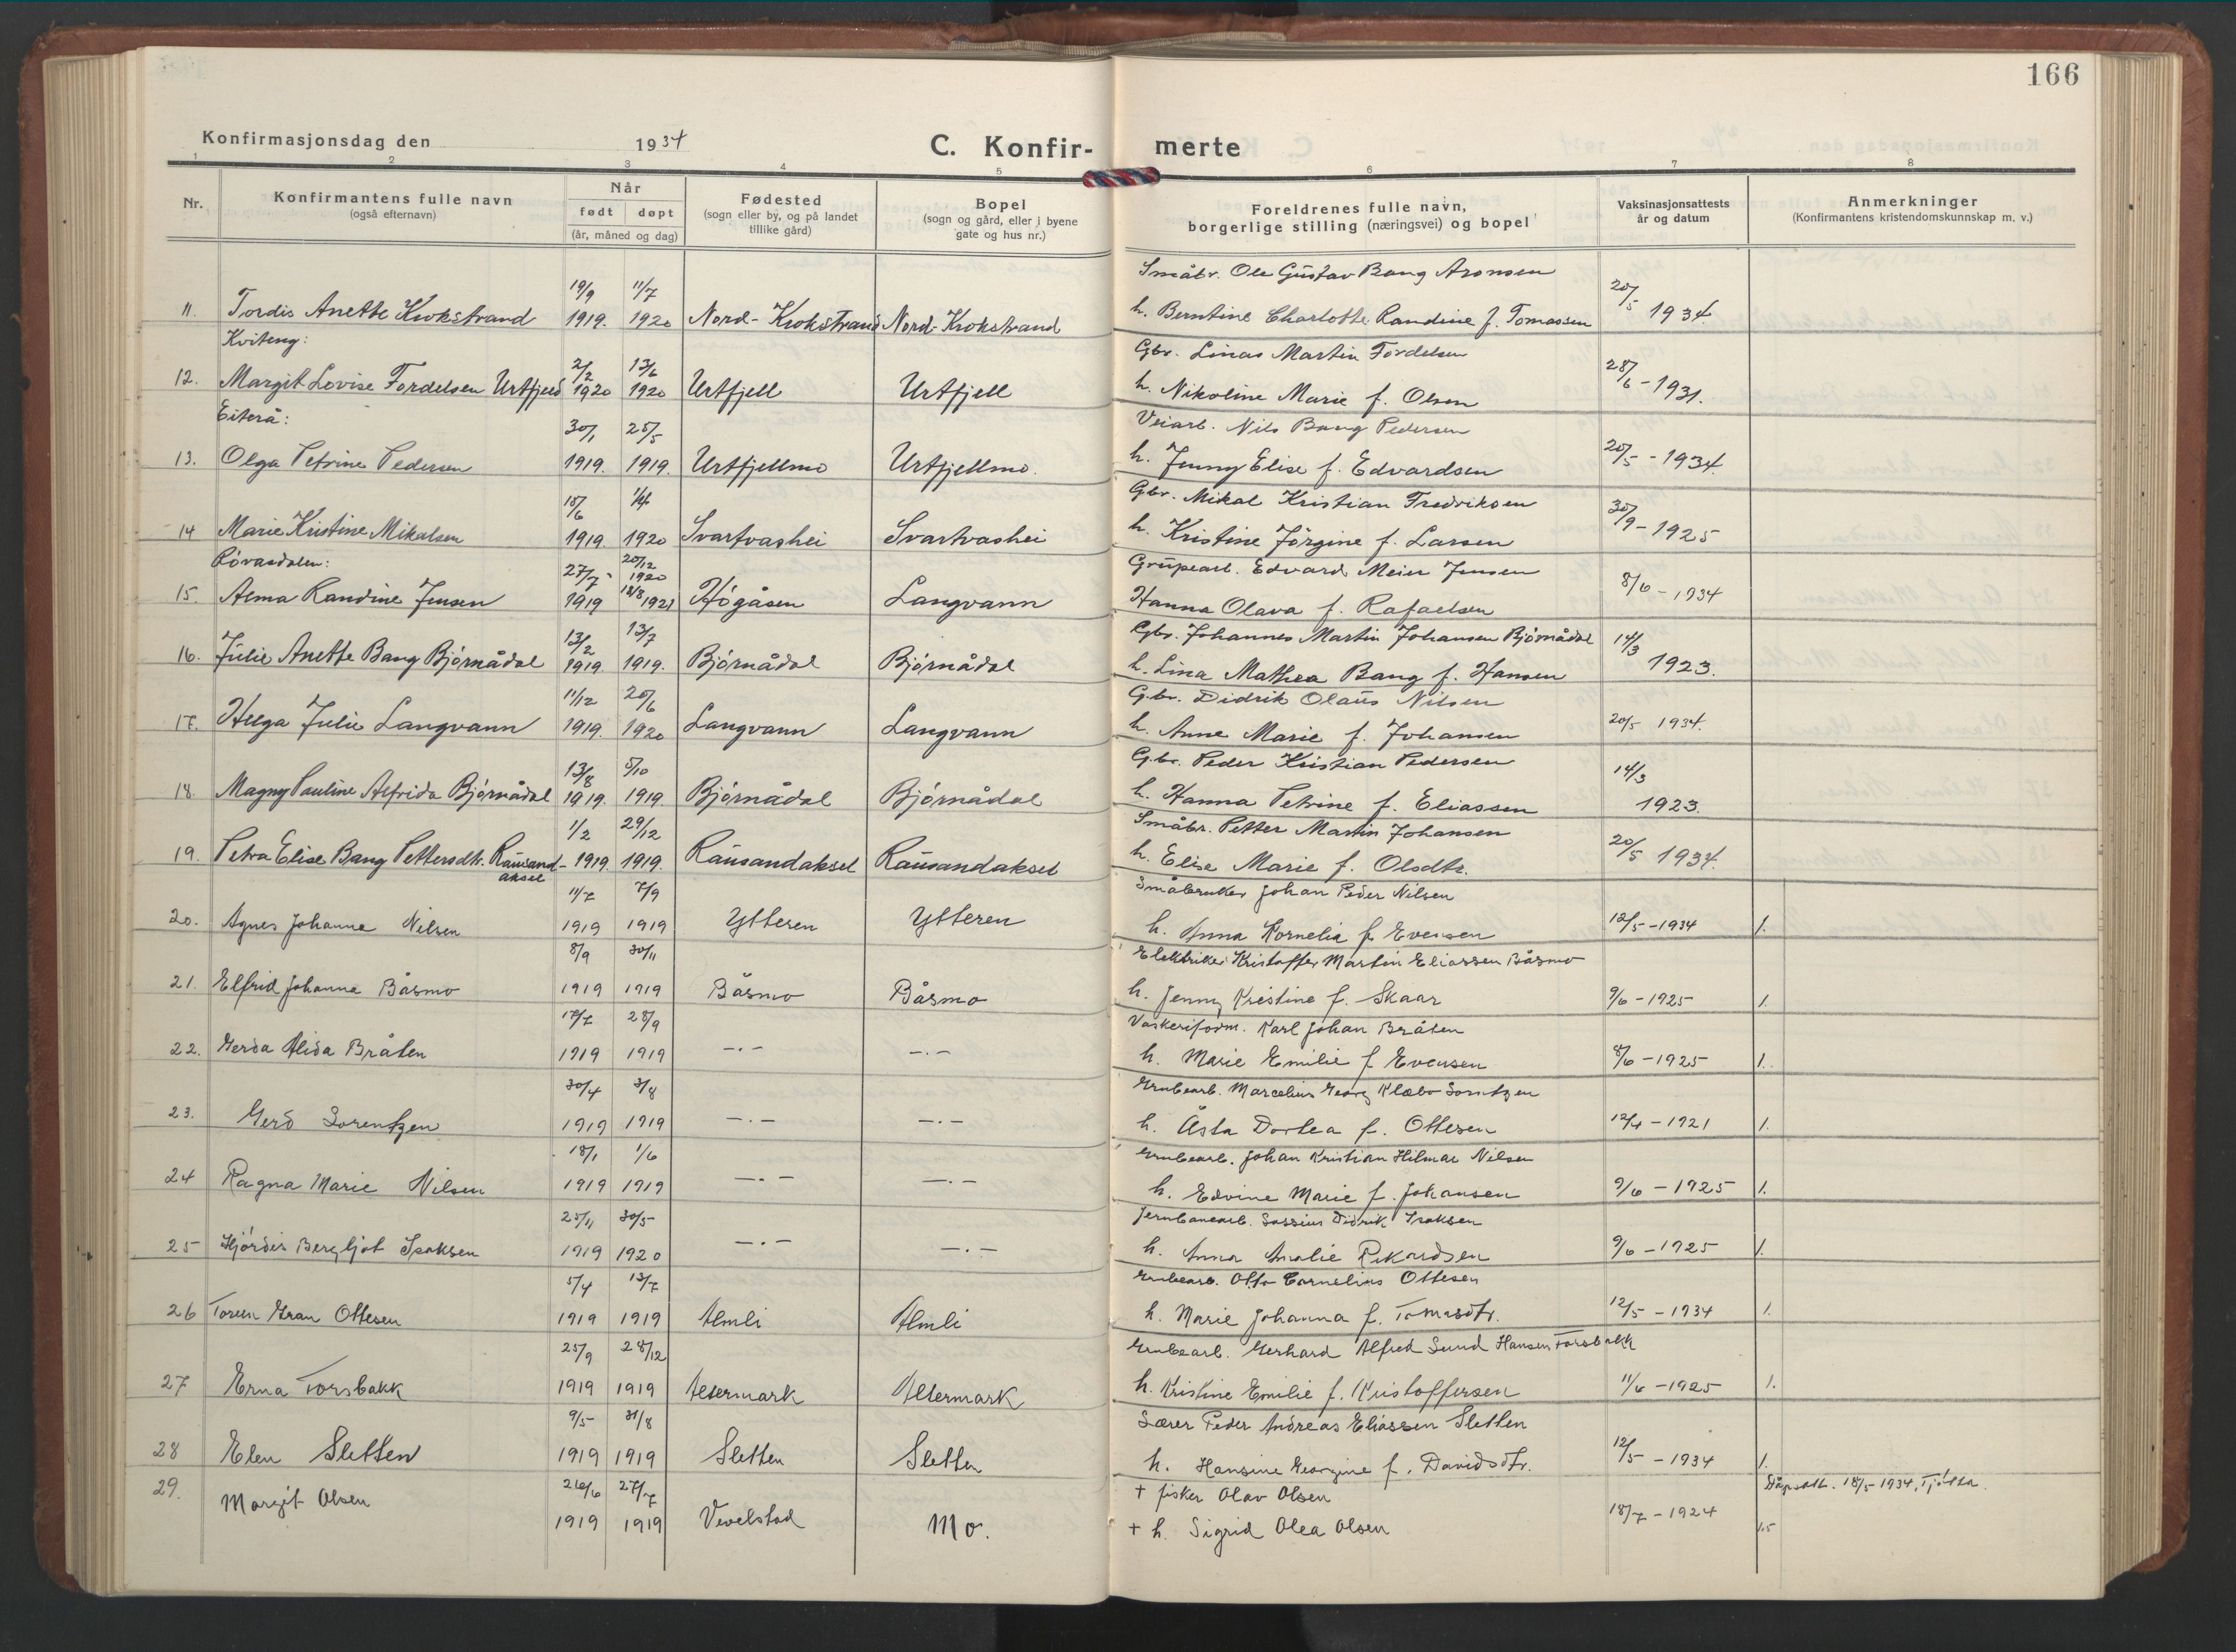 166
Konfirmasjonsdag den 1934
C. Konfir- merte
1 2 3 4 5 6 7 8
Nr. Konfirmantens fulle navn (også efternavn) Når født døpt (år, måned og dag) Fødested (sogn eller by, og på landet tillike gård) Bopel (sogn og gård, eller i byene gate og hus nr.) Foreldrenes fulle navn, borgerlige stilling (næringsvei) og bopel Vaksinasjonsattests år og datum Anmerkninger (Konfirmantens kristendomskunnskap m. v.)
Småbr. Ole Gustav Bang Aronsen
11. Tordis Anette Krokstrand 19/9 1919. 11/7 1920 Nord-Krokstrand Nord-Krokstrand h. Berntine Charlotte Randine f. Tomassen 20/5 1934.
Kviteng:
Gbr. Linas Martin Fordelsen
12. Margit Lovise Fordelsen Urtfjell 2/2 1920 13/6 1920 Urtfjell Urtfjell h. Nikoline Marie f. Olsen 28/6 - 1931.
Eiterå:
Veiarb. Nils Bang Pedersen
13. Olga Petrine Pedersen 30/1 1919. 25/5 1919. Urtfjellmo Urtfjellmo. h. Jenny Elise f. Edvardsen 20/5 - 1934.
Gbr. Mikal Kristian Fredriksen
14 Marie Kristine Mikalsen 18/6 1919. 1/4 1920 Svartvashei Svartvashei h. Kristine Jörgine f. Larsen 30/9 - 1925
Røvasdalen:
Grubearb. Edvard Meier Jensen
15. Alma Randine Jensen 27/7 1919 20/12 1920 18/8 1921 Högåsen Langvann Hanna Olava f. Rafaelsen 8/6 - 1934
Gbr. Johannes Martin Johansen Björnådal
16. Julie Anette Bang Björnådal 13/2 1919. 13/7 1919. Björnådal Björnådal h. Lina Mathea Bang f. Hansen 14/3 1923.
Gbr. Didrik Olaus Nilsen
17. Helga Julie Langvann 11/12 1919. 20/6 1920 Langvann Langvann h. Anne Marie f. Johansen 20/5 1934.
Gbr. Peder Kristian Pedersen
18. Magny Pauline Alfrida Björnådal 13/8 1919. 5/10 1919. Björnådal Björnådal h. Hanna Petrine f. Eliassen 14/3 1923.
Småbr. Petter Martin Johansen
19. Petra Elise Bang Pettersdtr. Rausand- 1/2 1919. 29/12 1919. Rausandaksel Rausandaksel h. Elise Marie f. Olsdtr. 20/5 1934.
aksel
Småbruker Johan Peder Nilsen
20. Agnes Johanna Nilsen 11/7 1919 7/9 1919 Ytteren Ytteren h. Anna Kornelia f. Evensen 12/5 - 1934 1.
Elektriker Kristoffer Martin Eliassen Båsmo
21. Elfrid Johanna Båsmo 8/9 1919 30/11 1919 Båsmo Båsmo h. Jenny Kristine f. Skaar 9/6 - 1925 1.
Vaskeriform. Karl Johan Bråten
22. Gerda Alida Bråten 17/7 1919 28/9 1919 -.- -.- h. Marie Emilie f. Evensen 8/6 - 1925 1.
Grubearb. Marcelius Georg Klæbo Sorntzen
23. Gerd Sorentzen 30/4 1919 3/8 1919 -.- -.- h. Åsta Dortea f. Ottesen 12/4 - 1921 1.
Grubearb. Johan Kristian Hilmar Nilsen
24 Ragna Marie Nilsen 18/1 1919 1/6 1919 -.- -.- h. Edvine Marie f. Johansen 9/6 - 1925 1.
Jernbanearb. Sossius Didrik Isaksen
25 Hjördis Bergljot Isaksen 25/11 1919 30/5 1920 -.- -.- h. Anna Analie Rikardsen 9/6 - 1925 1.
Grubearb. Otto Cornelius Ottesen
26 Toreen Gran Ottesen 5/4 1919 13/7 1919 Almli Almli h. Marie Johanna f. Tomasdtr. 12/5 - 1934 1.
Grubearb. Gerhard Alfred Sund Hansen Forsbakk
27 Erna Forsbakk 25/9 1919 28/12 1919 Altermark Altermark h. Kristine Emilie f. Kristoffersen 11/6 - 1925 1.
Lærer Peder Andreas Eliassen Sletten
28 Elen Sletten 9/5 1919 31/8 1919 Sletten Sletten h. Hansine Georgine f. Davidsdtr. 12/5 - 1934 1.
+ fisker Olav Olsen Dåpsatt. 18/5 - 1934, Tjötta.
29. Margit Olsen 26/6 1919 27/7 1919 Vevelstad Mo. + h. Sigrid Olea Olsen 18/7 - 1924 1.5